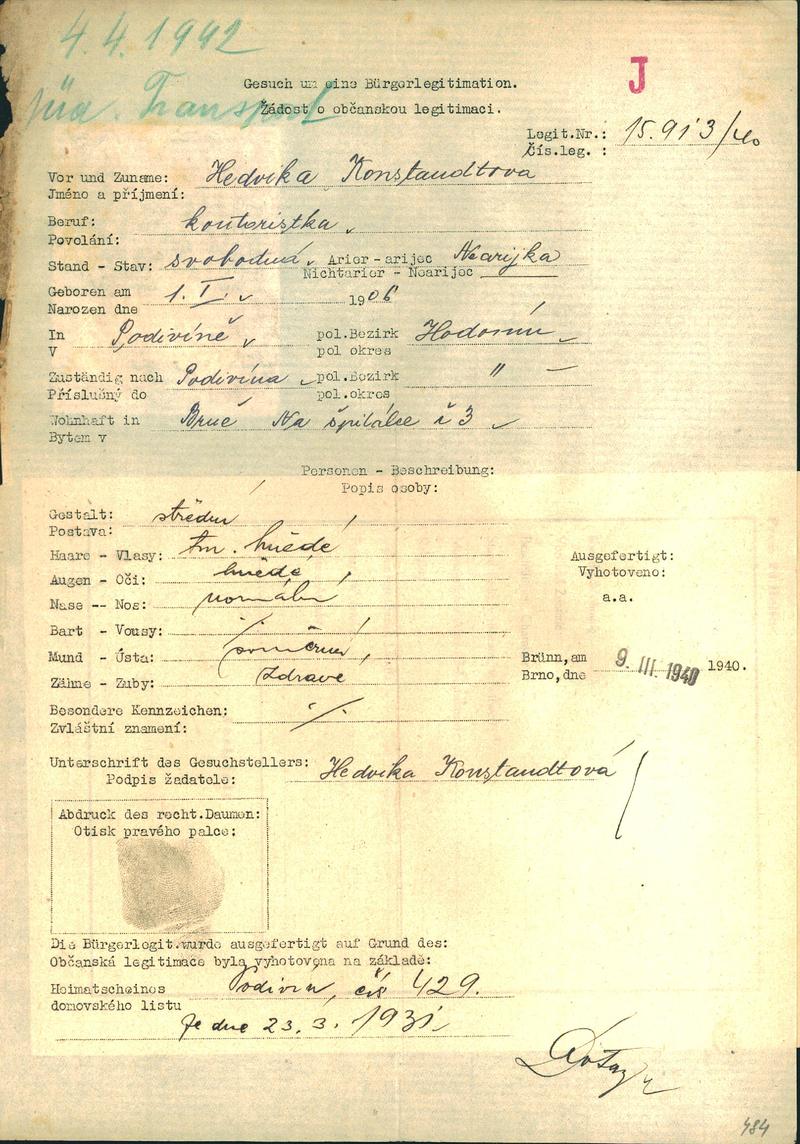 4.4.1942
Jüd. Transport
J
Gesuch um eine Bürgerlegitimation.
Žádost o občanskou legitimaci.
Legit.Nr.: 15.913/40
Čís.leg. :
Vor und Zuname: Hedvika Konstandtova
Jméno a příjmení:
Beruf: kontoristka
Povolání:
Stand - Stav: svobodná Arier - arijec Nearijka
Nichtarier - Nearijec
Geboren am 1. I. 1906
Narozen dne
In Podivíně pol.Bezirk Hodonín
V pol okres
Zuständig nach Podivína pol.Bezirk "
Příslušný do pol.okres
Wohnhaft in Brně Na špitálce č 3
Bytem v
Personen - Beschreibung:
Popis osoby:
Gestalt: střední
Postava:
Haare - Vlasy: tm. hnědé
Augen - Oči: hnědé
Nase -- Nos: normální
Bart - Vousy: ./.
Mund - Ústa: souměrná
Zähne - Zuby: zdravé
Besondere Kennzeichen: ./.
Zvláštní znamení:
Ausgefertigt:
Vyhotoveno:
a.a.
Brünn,am 9. III. 1940 1940.
Brno,dne
Unterschrift des Gesuchstellers: Hedvika Konstandtová
Podpis žadatele:
Abdruck des recht.Daumen:
Otisk pravého palce:
Die Bürgerlegit.wurde ausgefertigt auf Grund des:
Občanská legitimace byla vyhotovena na základě:
Heimatscheines Podivín, čís 429.
domovského listu
ze dne 23.3.1931
484